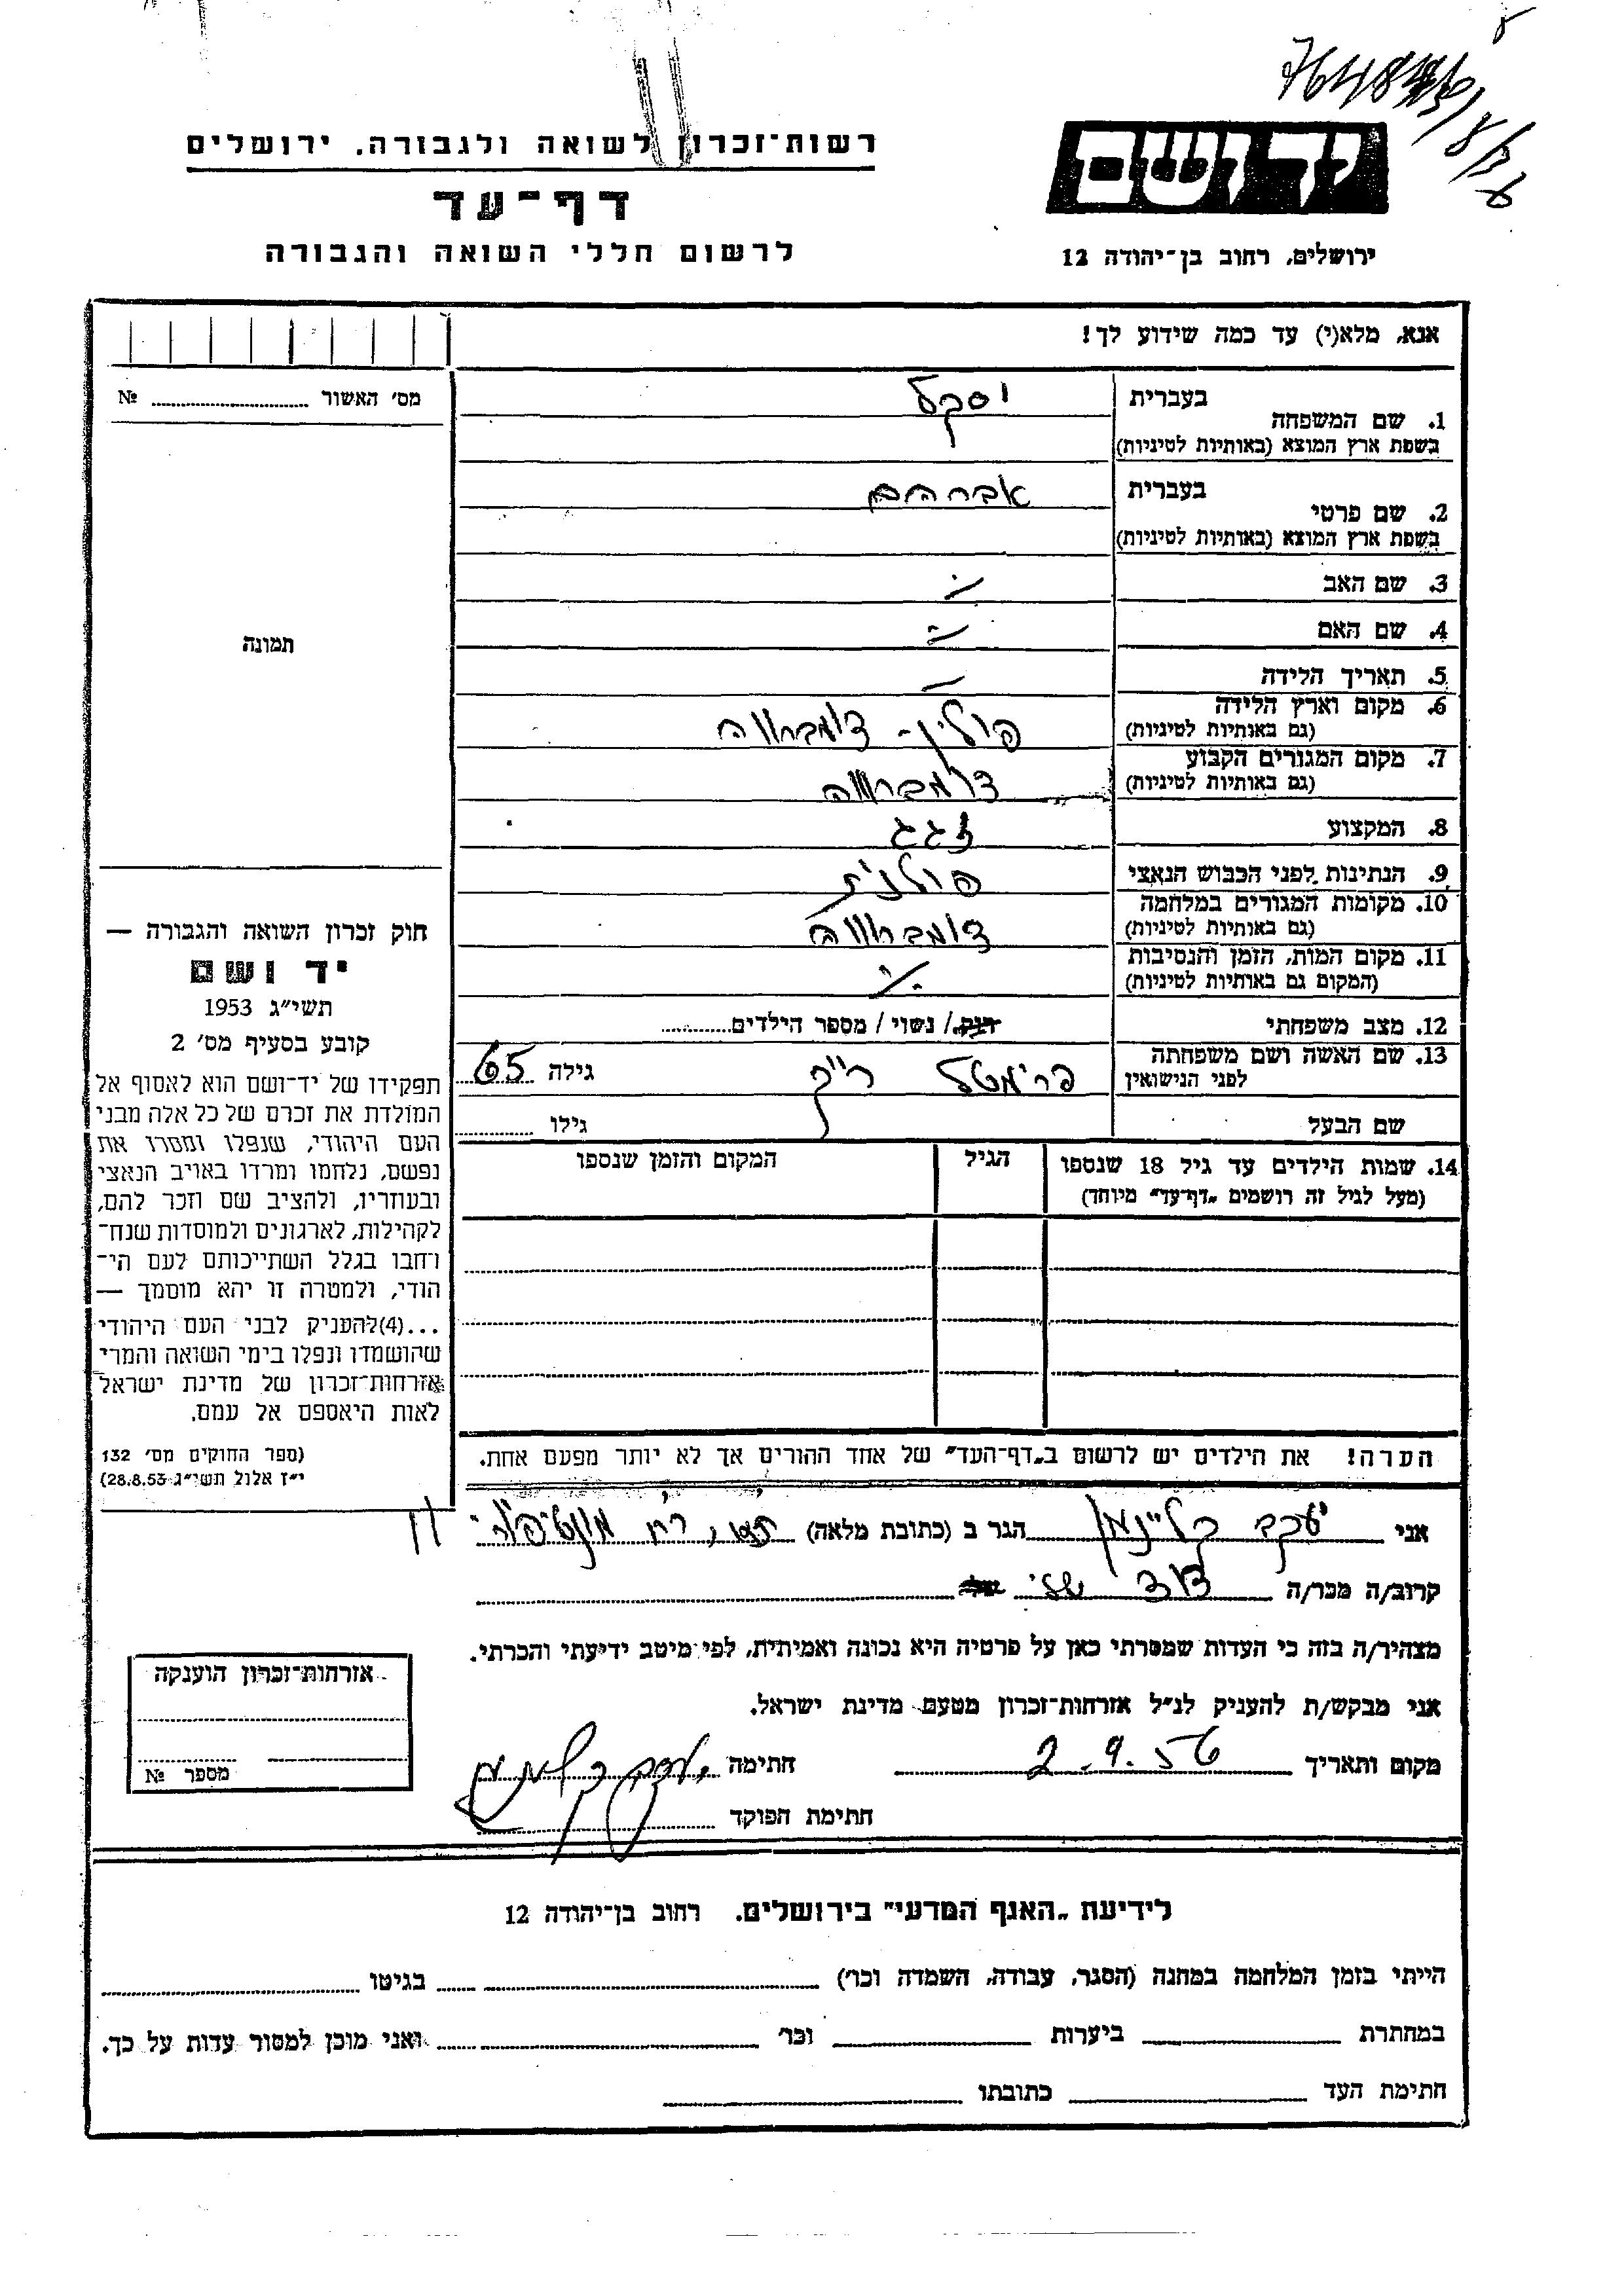 רשות־זכרון לשואה ולגבורה. ירושלים
דף־עד
לרשום חללי השואה והגבורה
יד ושם
ירושלים, רחוב בן־יהודה 12
אנא, מלא(י) עד כמה שידוע לך!
מס׳ האשור № 
בעברית יסקל
1. שם המשפחה
בשפת ארץ המוצא (באותיות לטיניות)
בעברית אברהם
2. שם פרטי
בשפת ארץ המוצא (באותיות לטיניות)
3. שם האב
4. שם האם
5. תאריך הלידה
6. מקום וארץ הלידה פולין - דומברובה
(גם באותיות לטיניות)
7. מקום המגורים הקבוע דומברובה
(גם באותיות לטיניות)
8. המקצוע זגג
9. הנתינות לפני הכבוש הנאצי פולנית
10. מקומות המגורים במלחמה דומברובה
(גם באותיות לטיניות)
11. מקום המות, הזמן והנסיבות
(המקום גם באותיות לטיניות)
12. מצב משפחתי רוק / נשוי / מספר הילדים
13. שם האשה ושם משפחתה פרימטל גילה 65
לפני הנישואין
שם הבעל גילו
14. שמות הילדים עד גיל 18 שנספו הגיל המקום והזמן שנספו
(מעל לגיל זה רושמים „דף־עד” מיוחד)
הערה! את הילדים יש לרשום ב„דף־העד” של אחד ההורים אך לא יותר מפעם אחת.
תמונה
חוק זכרון השואה והגבורה —
יד ושם
תשי״ג 1953
קובע בסעיף מס׳ 2
תפקידו של יד־ושם הוא לאסוף אל
המולדת את זכרם של כל אלה מבני
העם היהודי, שנפלו ומסרו את
נפשם, נלחמו ומרדו באויב הנאצי
ובעוזריו, ולהציב שם וזכר להם,
לקהילות, לארגונים ולמוסדות שנח־
רחבו בגלל השתייכותם לעם הי־
הודי, ולמטרה זו יהא מוסמך —
...(4)להעניק לבני העם היהודי
שהושמדו ונפלו בימי השואה והמרי
אזרחות־זכרון של מדינת ישראל
לאות היאספם אל עמם.
(ספר החוקים מס׳ 132
י״ז אלול תשי״ג 28.8.53)
אני יעקב קליינמן הגר ב (כתובת מלאה)
קרוב/ה מכר/ה דוד שלי
מצהיר/ה בזה כי העדות שמסרתי כאן על פרטיה היא נכונה ואמיתית, לפי מיטב ידיעתי והכרתי.
אני מבקש/ת להעניק לנ״ל אזרחות־זכרון מטעם מדינת ישראל.
מקום ותאריך 2.9.56 חתימה
חתימת הפוקד
אזרחות־זכרון הוענקה
מספר №
לידיעת „האגף המדעי” בירושלים. רחוב בן־יהודה 12
הייתי בזמן המלחמה במחנה (הסגר, עבודה, השמדה וכו׳) בגיטו
במחתרת ביערות וכו׳ ואני מוכן למסור עדות על כך.
חתימת העד כתובתו